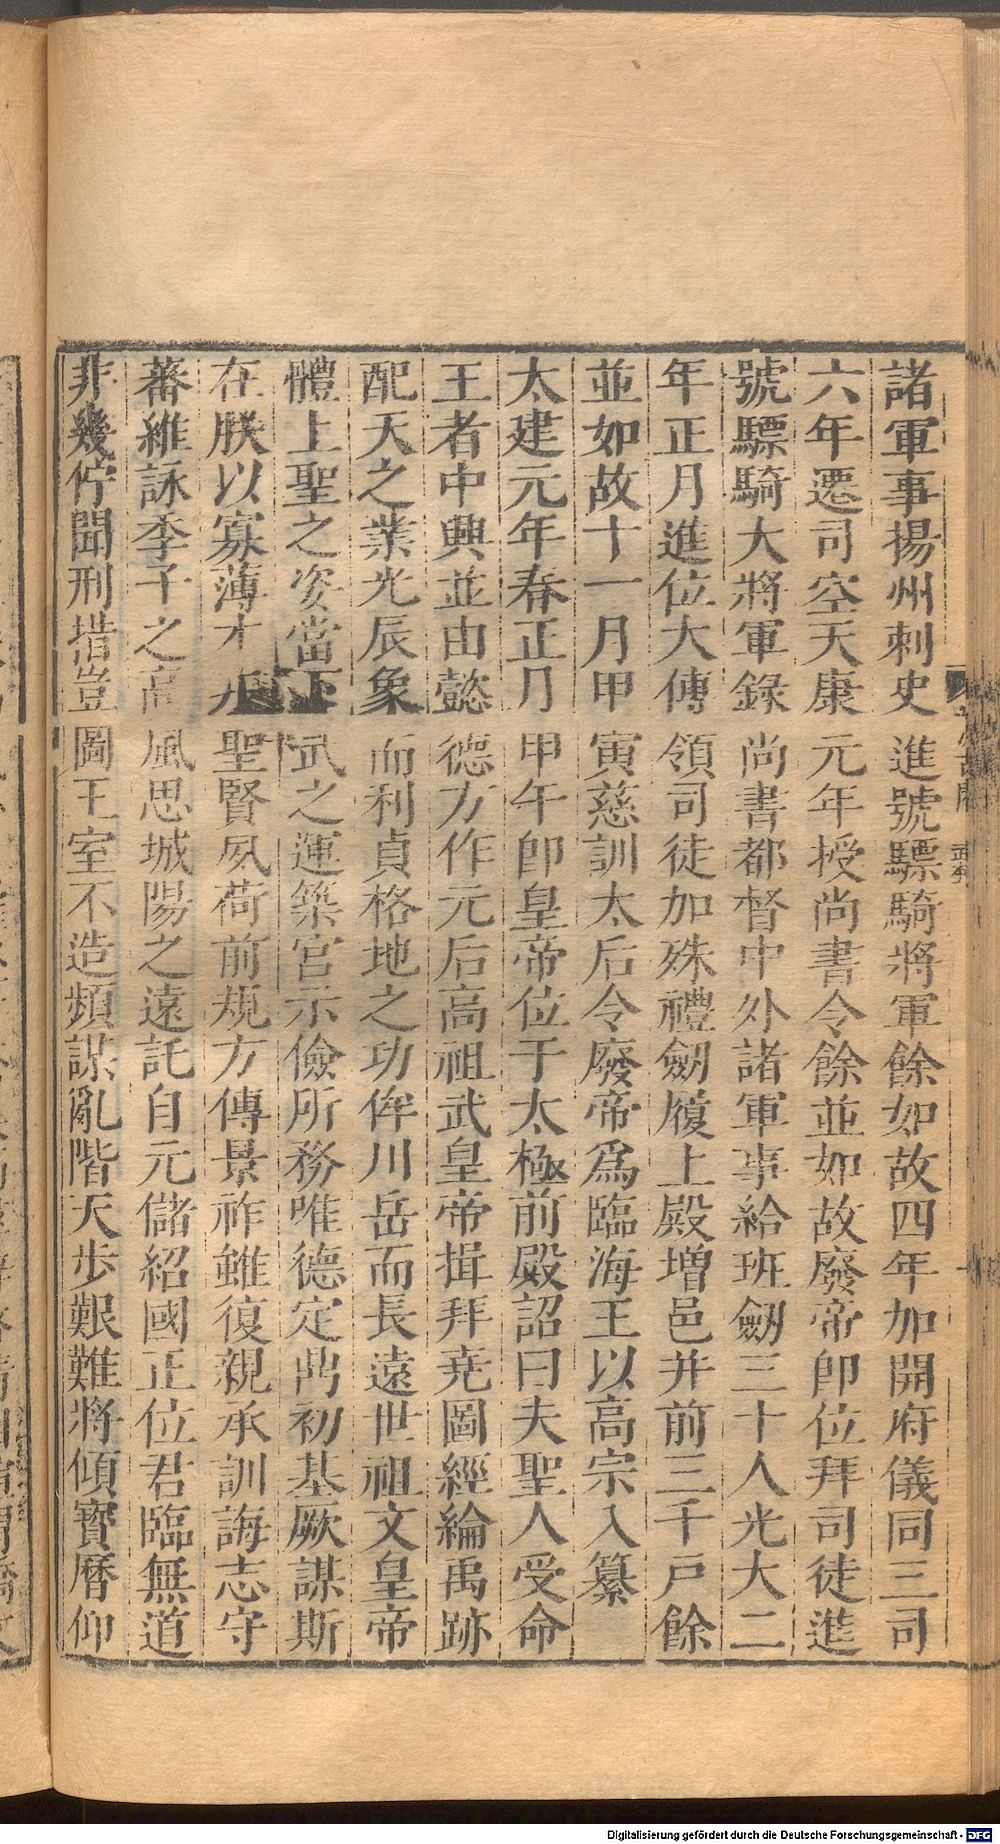 諸軍事揚州刺史進號驃騎將軍餘如故四年加開府儀同三司
六年遷司空天康元年授尚書令餘並如故廢帝即位拜司徒進
號驃騎大將軍錄尚書都督中外諸軍事給班劒三十人光大二
年正月進位大傅領司徒加殊禮劒履上殿增邑并前三千戸餘
並如故十一月甲寅慈訓太后令廢帝爲臨海王以高宗入纂
太建元年春正月甲午卽皇帝位于太極前殿詔曰夫聖人受命
王者中興並由懿德方作元后高祖武皇帝揖拜堯圖經綸禹跡
配天之業光辰象而利貞格地之功侔川岳而長遠世祖文皇帝
體上聖之姿當下武之運築宮示儉所務唯德定鼎初基厥謀斯
在朕以寡薄才非聖賢夙荷前規方傳景祚雖復親承訓誨志守
蕃維詠季子之高風思城陽之遠託自元儲紹國正位君臨無道
非幾佇聞刑措豈圖王室不造頻謀亂階天步艱難將傾寶曆仰
Digitalisierung gefördert durch die Deutsche Forschungsgemeinschaft - DFG